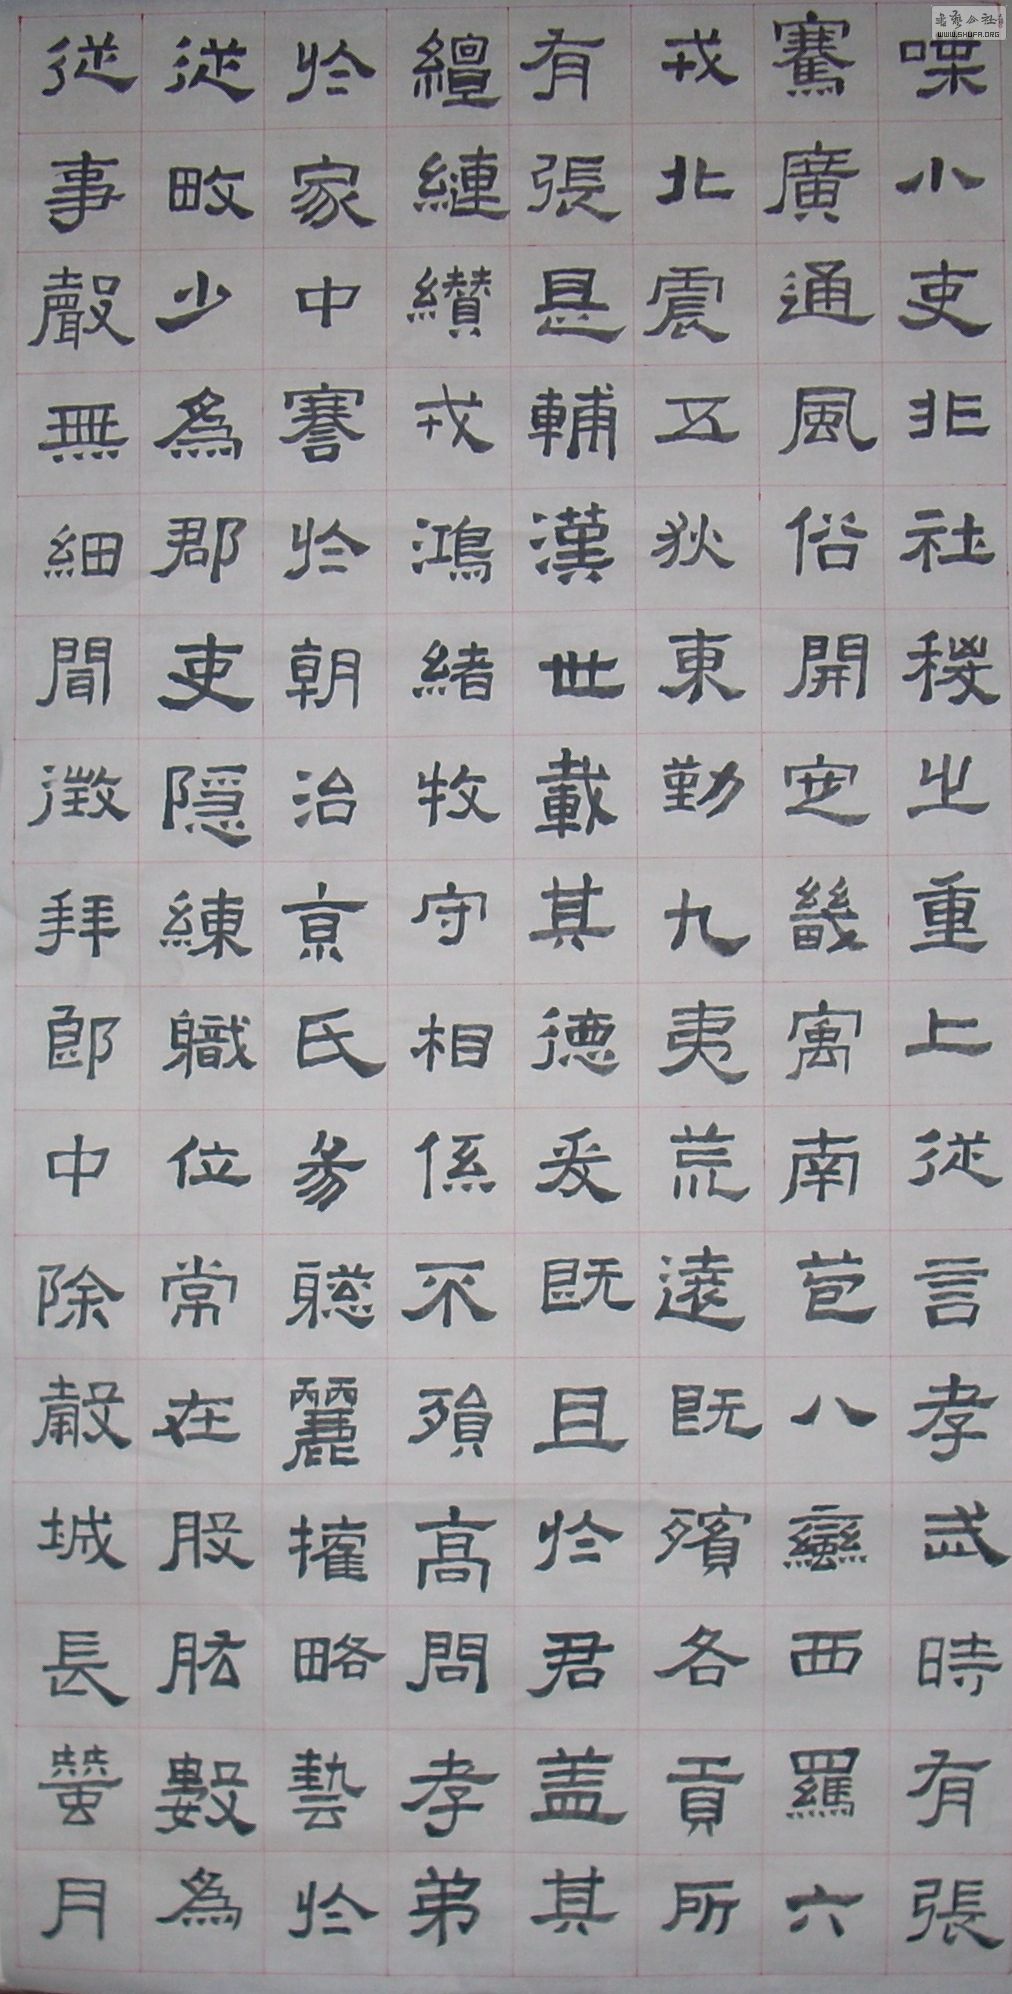 喋小吏非社稷之重上從言孝武時有張
騫廣通風俗開定畿寓南苞八蠻西羈六
戎北震五狄東勤九夷荒遠既殯各貢所
有張是輔漢世載其德爰既且於君盖其
纏縺纘戎鴻緒牧守相係不殞高問孝弟
於家中謇於朝治京氏易聰麗權略藝於
從畋少為郡吏隱練職位常在股肱數為
從事聲無細聞徵拜郎中除穀城長蠶月
書藝公社
WWW.SHUFA.ORG